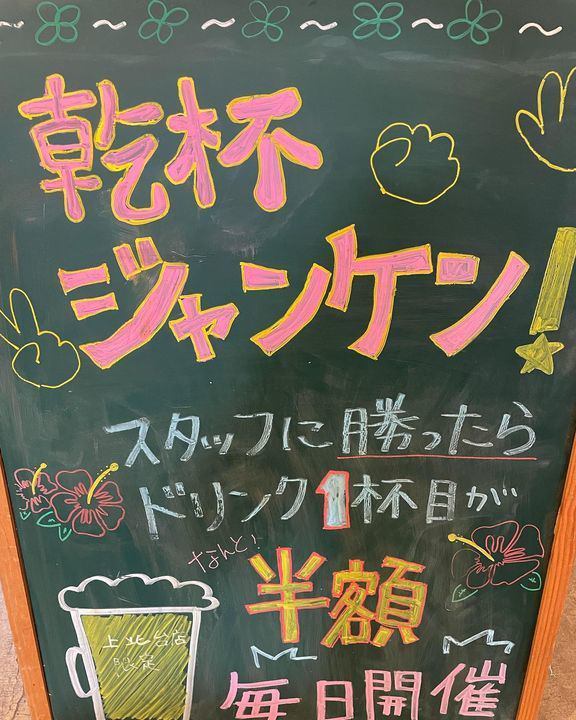 乾杯
ジャンケン!
スタッフに勝ったら
ドリンク1杯目が
なんと、
半額
上北台店
限定
毎日開催